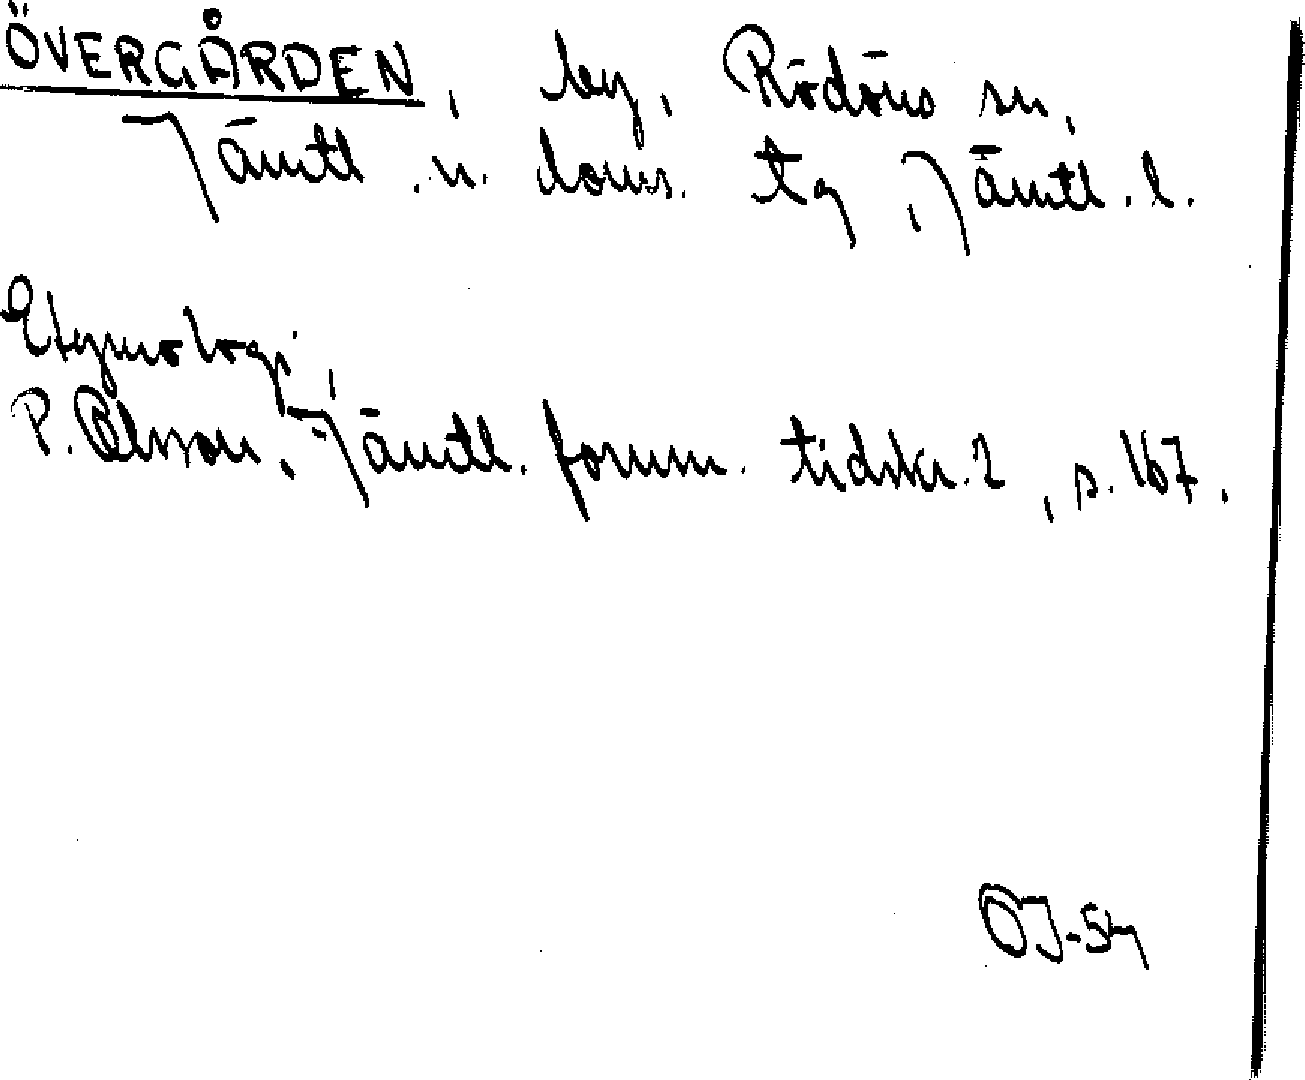 ÖVERGÅRDEN, by, Rödöns sn,
Jämtl. n. doms. tg, Jämtl. l.
Etymologi,
P. Olsson, Jämtl. fornm. tidskr. 2, s. 167.
OJ-54